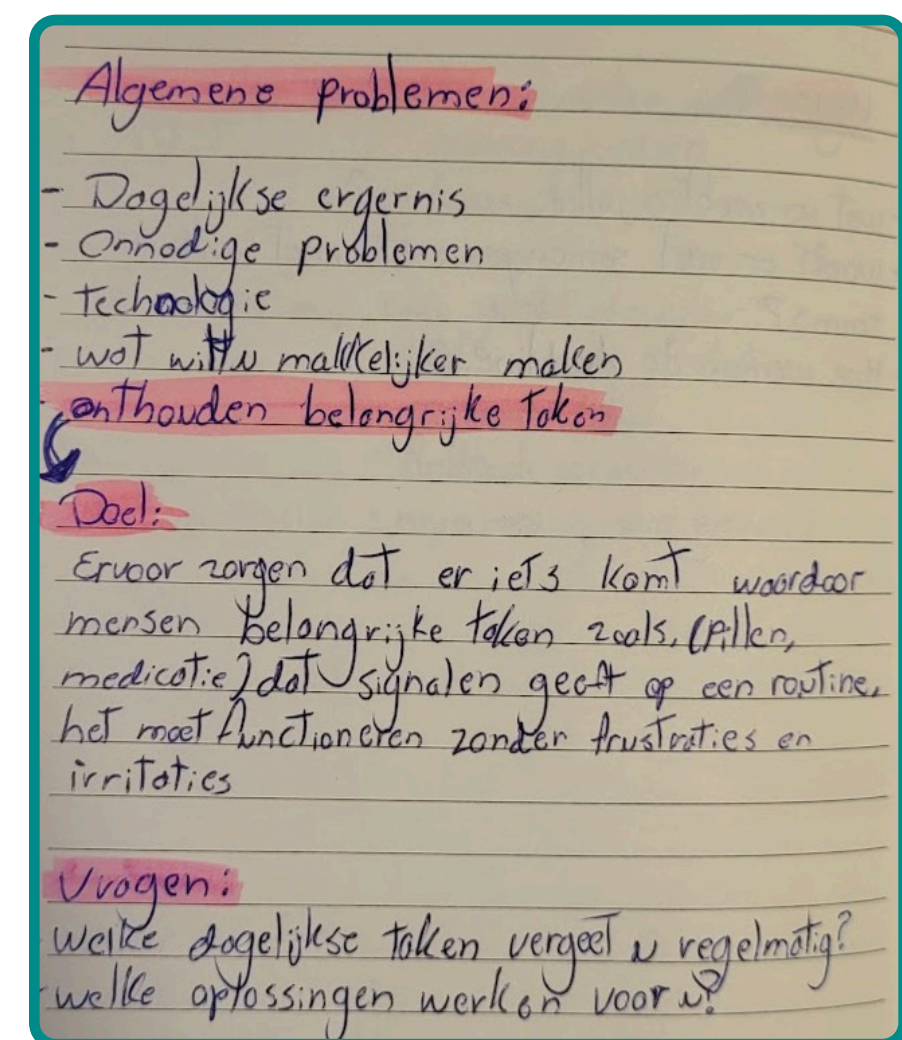 Algemene problemen:
- Dagelijkse ergernis
- Onnodige problemen
- technologie
- wat wilt u makkelijker maken
- onthouden belangrijke taken
Doel:
Ervoor zorgen dat er iets komt waardoor
mensen belangrijke taken zoals, (Pillen,
medicatie) dat signalen geeft op een routine,
het moet functioneren zonder frustraties en
irritaties
Vragen:
- welke dagelijkse taken vergeet u regelmatig?
- welke oplossingen werken voor u?